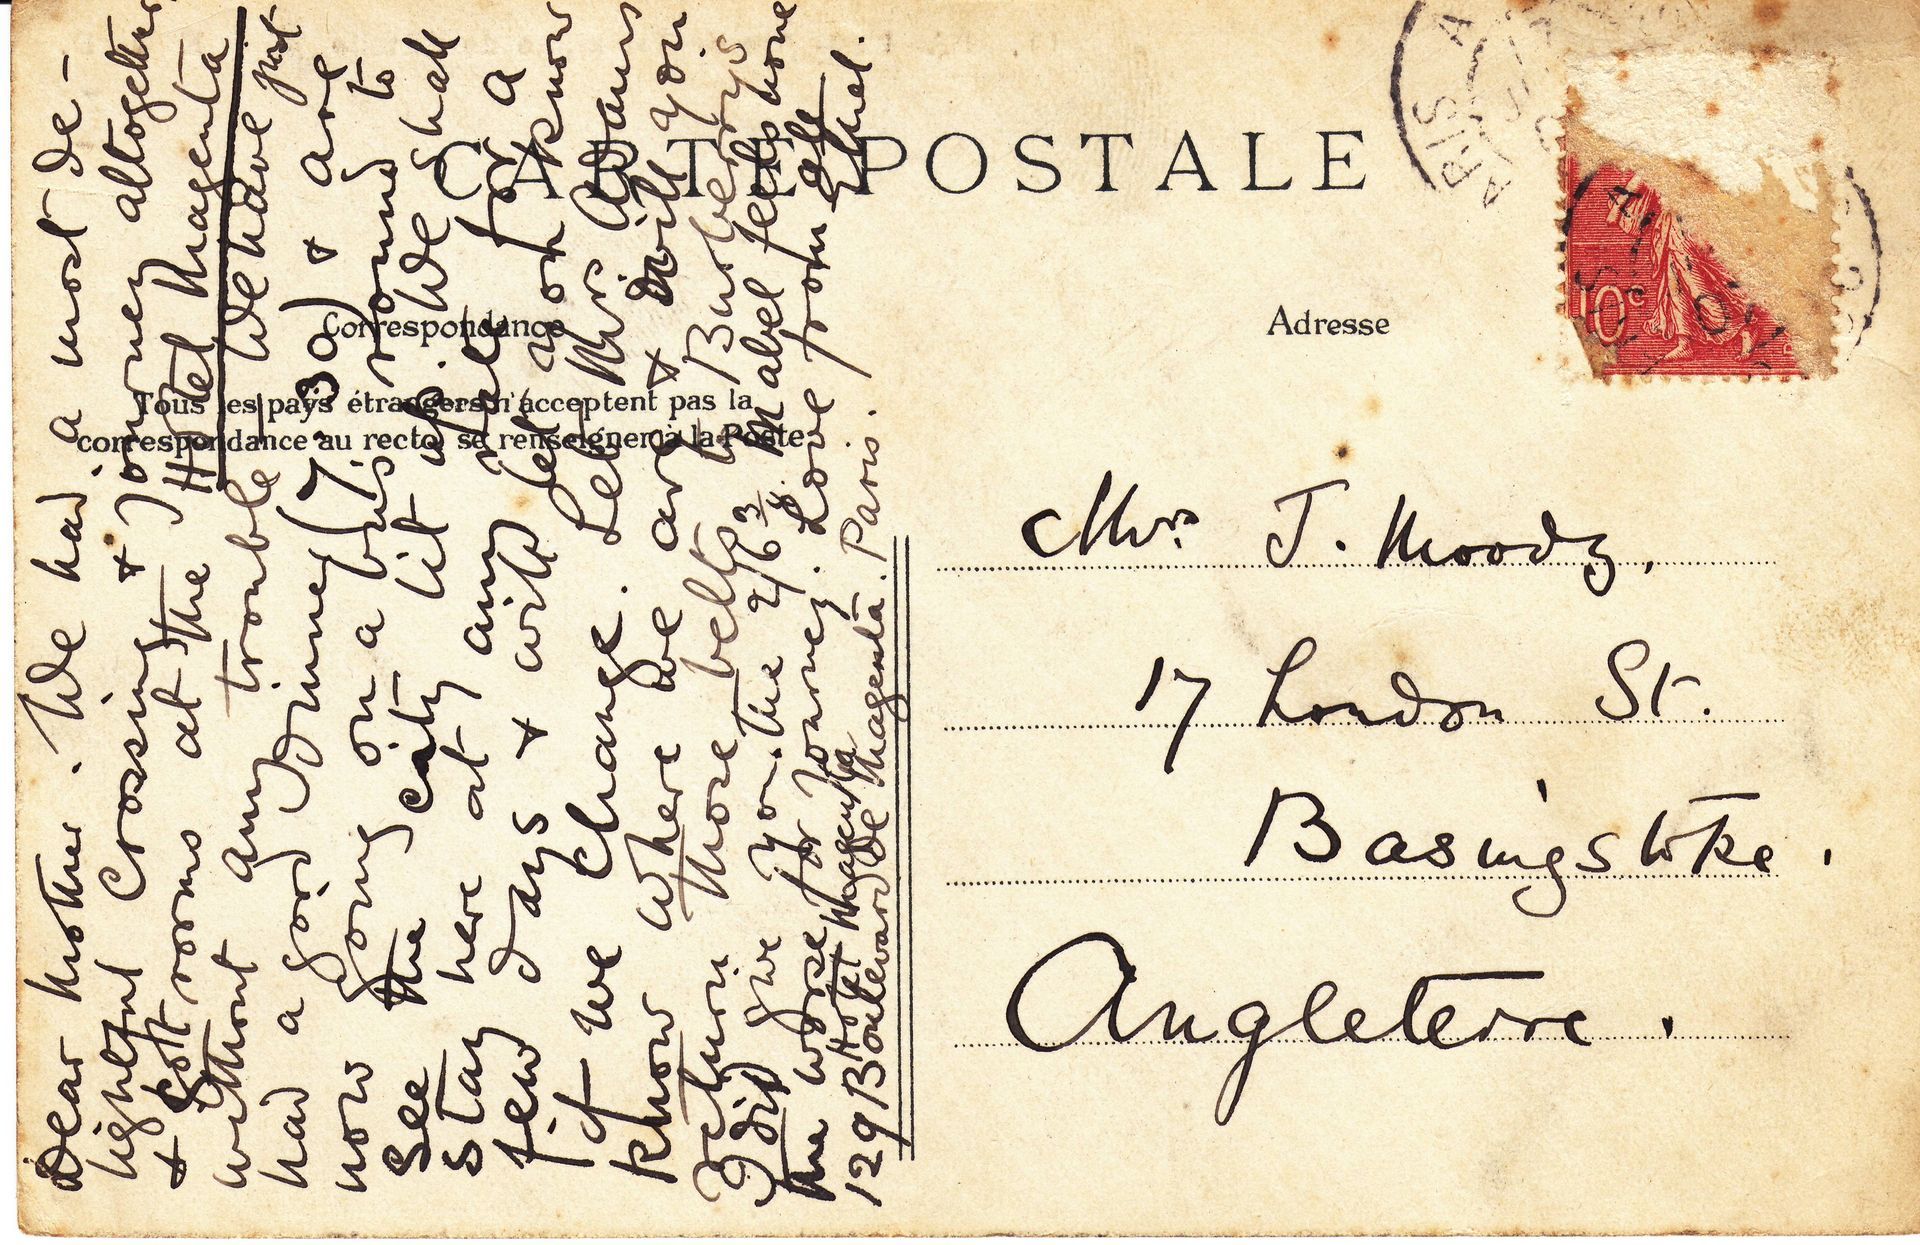 CARTE POSTALE
Correspondance
Tous les pays étrangers n'acceptent pas la
correspondance au recto, se renseigner à la Poste.
Adresse
10c
PARIS
Dear Mother. We had a most de-
lightful crossing & journey altogether
& got rooms at the Hotel Magenta
without any trouble We have just
had a good dinner (7.30) & are
now going on a bus round to
see the city lit up. We shall
stay here at any rate for a
few days & will let you know
if we change. Let Mrs Adams
know where we are & will you
return those belts to Burberrys
I did give you. The 2/6¾ Mabel feels none
the worse for journey. Love from Elf
Hotel Magenta Ethel.
129 Boulevard de Magenta. Paris.
Mrs. J. Moody,
17 London St.
Basingstoke.
Angleterre.